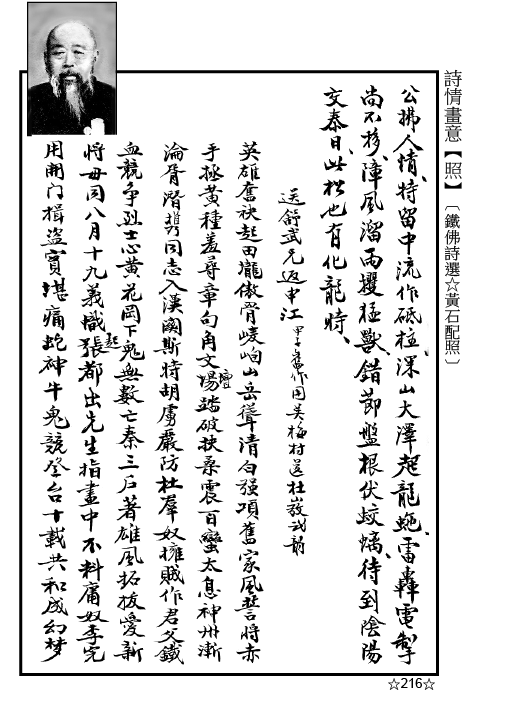 詩情畫意【照】〔鐵佛詩選☆黃石配照〕
公拂人情、特留中流作砥柱、深山大澤起龍蛇、雷轟電掣
尚不移、障風溜雨攫猛獸、錯節盤根伏蛟螭、待到陰陽
交泰日、此松也有化龍時、
送舒武兄返申江 甲子舊作用吳梅村送杜弢武韵
英雄奮袂起田隴傲骨崚岣山岳聳清白强項舊家風誓將赤
手拯黃種羞尋章句角文壇踏破扶桑震百蠻太息神州漸
淪胥潛携同志入漢關斯時胡虜嚴防杜羣奴擁賊作君父鐵
血競爭烈士心黃花岡下鬼無數亡秦三戶著雄風拓拔愛新
將毋同八月十九義幟張起都出先生指畫中不料庸奴李完
用開门揖盜實堪痛蛇神牛鬼競登台十載共和成幻梦
☆216☆